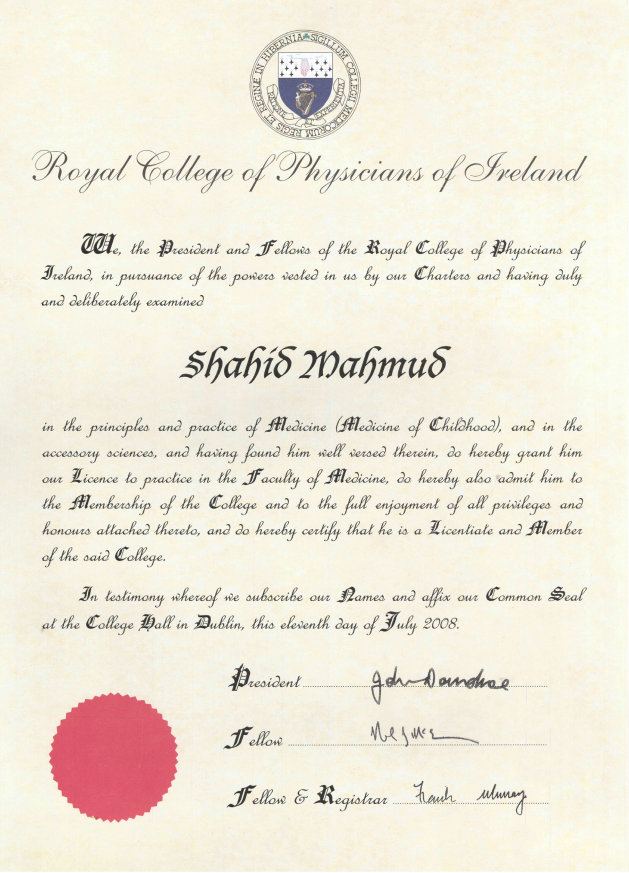 REGIS ET REGINÆ IN HIBERNIA SIGILLUM COLLEGII MEDICORUM
Royal College of Physicians of Ireland
We, the President and Fellows of the Royal College of Physicians of
Ireland, in pursuance of the powers vested in us by our Charters and having duly
and deliberately examined
Shahid Mahmud
in the principles and practice of Medicine (Medicine of Childhood), and in the
accessory sciences, and having found him well versed therein, do hereby grant him
our Licence to practice in the Faculty of Medicine, do hereby also admit him to
the Membership of the College and to the full enjoyment of all privileges and
honours attached thereto, and do hereby certify that he is a Licentiate and Member
of the said College.
In testimony whereof we subscribe our Names and affix our Common Seal
at the College Hall in Dublin, this eleventh day of July 2008.
President John Donohoe
Fellow
Fellow & Registrar Frank Murray